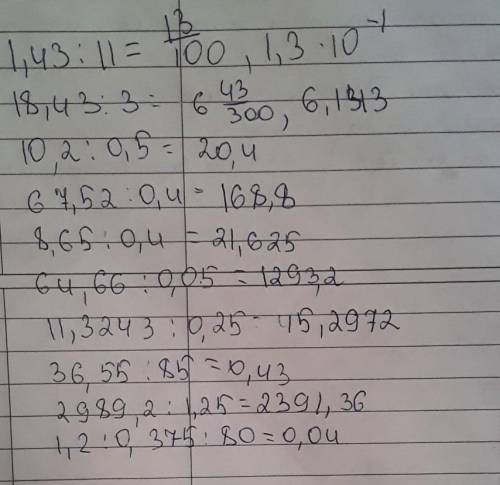 1,43 : 11 = 13/100, 1,3 · 10⁻¹
18,43 : 3 = 6 43/300, 6,1313
10,2 : 0,5 = 20,4
67,52 : 0,4 = 168,8
8,65 : 0,4 = 21,625
64,66 : 0,05 = 1293,2
11,3243 : 0,25 = 45,2972
36,55 : 85 = 0,43
2989,2 : 1,25 = 2391,36
1,2 : 0,375 : 80 = 0,04